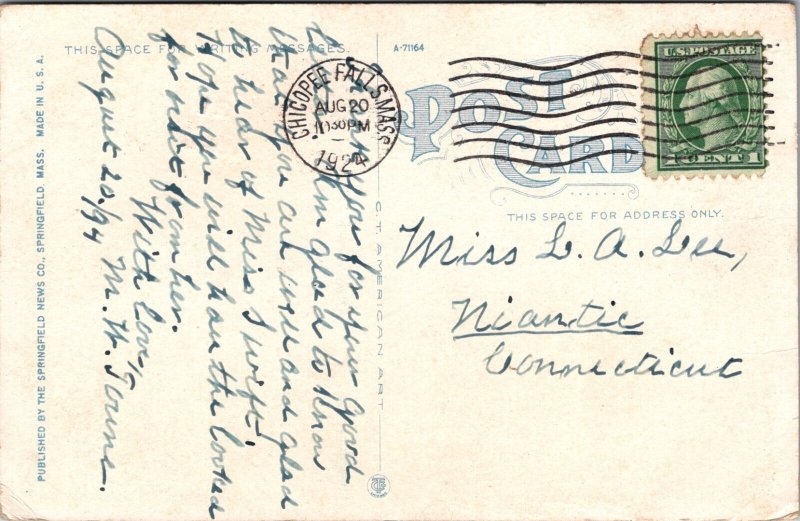 THIS SPACE FOR WRITING MESSAGES.
A-71164
POST CARD
CHICOPEE FALLS, MASS.
AUG 20
1030 PM
1924
U.S. POSTAGE
1 CENT 1
THIS SPACE FOR ADDRESS ONLY.
Miss L. A. Lee,
Niantic
Connecticut
Thank you for your good
Am glad to know
that you are well and glad
to hear of Miss Swift.
Hope you will have the looked
for visit from her.
With love,
August 20/24 M. H.
C.T. AMERICAN ART
PUBLISHED BY THE SPRINGFIELD NEWS CO., SPRINGFIELD, MASS. MADE IN U.S.A.